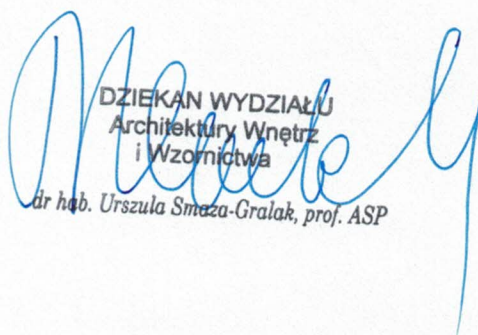 DZIEKAN WYDZIAŁU
Architektury Wnętrz
i Wzornictwa
dr hab. Urszula Smaza-Gralak, prof. ASP